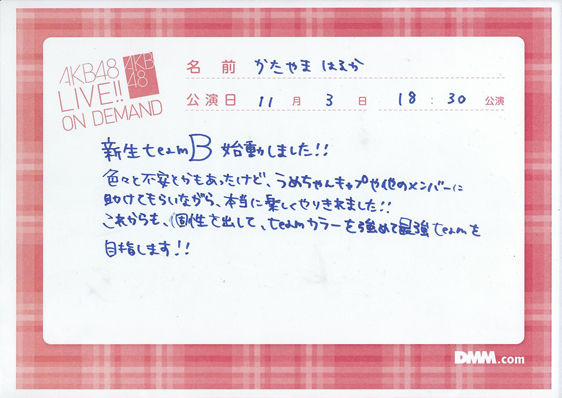 AKB48
LIVE!!
ON DEMAND
AKB
48
名前 かたやま はるか
公演日 11月 3日 18:30公演
新生teamB 始動しました!!
色々と不安とかもあったけど、うめちゃんキャプや他のメンバーに
助けてもらいながら、本当に楽しくやりきれました!!
これからも、個性を出して、teamカラーを強めて最強teamを
目指します!!
DMM.com